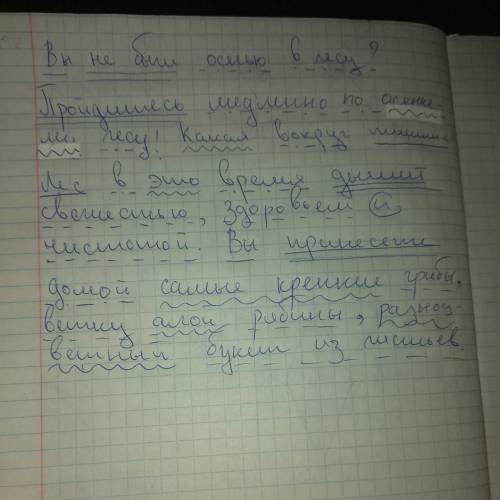 Вы не были осенью в лесу?
Пройдитесь медленно по осенне-
му лесу! Какая вокруг тишина
Лес в это время дышит
свежестью, здоровьем и
чистотой. Вы принесете
домой самые крепкие грибы,
ветку алой рябины, разноц-
ветный букет из листьев.